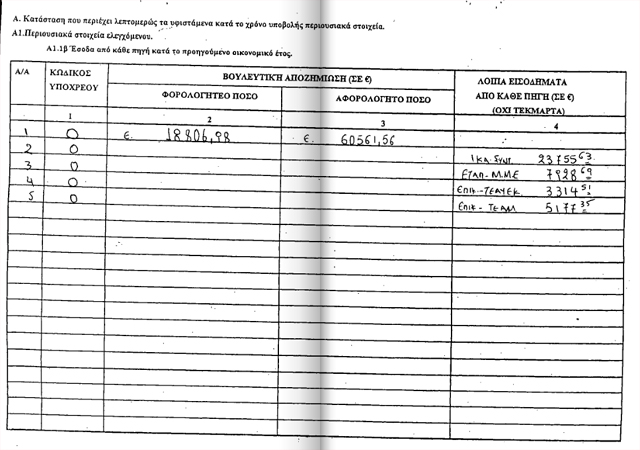 Α. Κατάσταση που περιέχει λεπτομερώς τα υφιστάμενα κατά το χρόνο υποβολής περιουσιακά στοιχεία.
Α1.Περιουσιακά στοιχεία ελεγχόμενου.
Α1.1β Έσοδα από κάθε πηγή κατά το προηγούμενο οικονομικό έτος.
Α/Α ΚΩΔΙΚΟΣ ΥΠΟΧΡΕΟΥ ΒΟΥΛΕΥΤΙΚΗ ΑΠΟΖΗΜΙΩΣΗ (ΣΕ €) ΛΟΙΠΑ ΕΙΣΟΔΗΜΑΤΑ
ΑΠΟ ΚΑΘΕ ΠΗΓΗ (ΣΕ €)
ΦΟΡΟΛΟΓΗΤΕΟ ΠΟΣΟ ΑΦΟΡΟΛΟΓΗΤΟ ΠΟΣΟ (ΟΧΙ ΤΕΚΜΑΡΤΑ)
1 2 3 4
1 0 €. 18806,98 €. 60561,56
2 0 ΙΚΑ ΣΥΝΤ. 23755 63
3 0 ΕΤΑΠ-Μ.Μ.Ε 7928 69
4 0 ΕΠΙΚ-ΤΕΑΥΕΚ 3314 51
5 0 ΕΠΙΚ- ΤΕΑΜ 5177 35